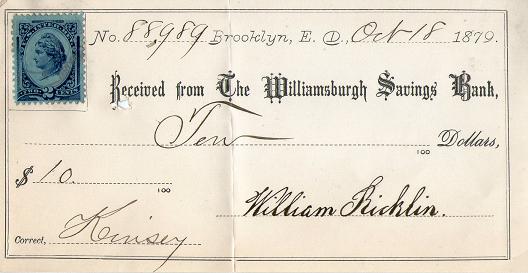 U.S. INTER. REV.
TWO 2 CENTS
No. 88,989 Brooklyn, E. D., Oct 18 1879.
Received from The Williamsburgh Savings Bank,
Ten 100 Dollars,
$ 10. 100
William Ricklin.
Correct, Kinsey